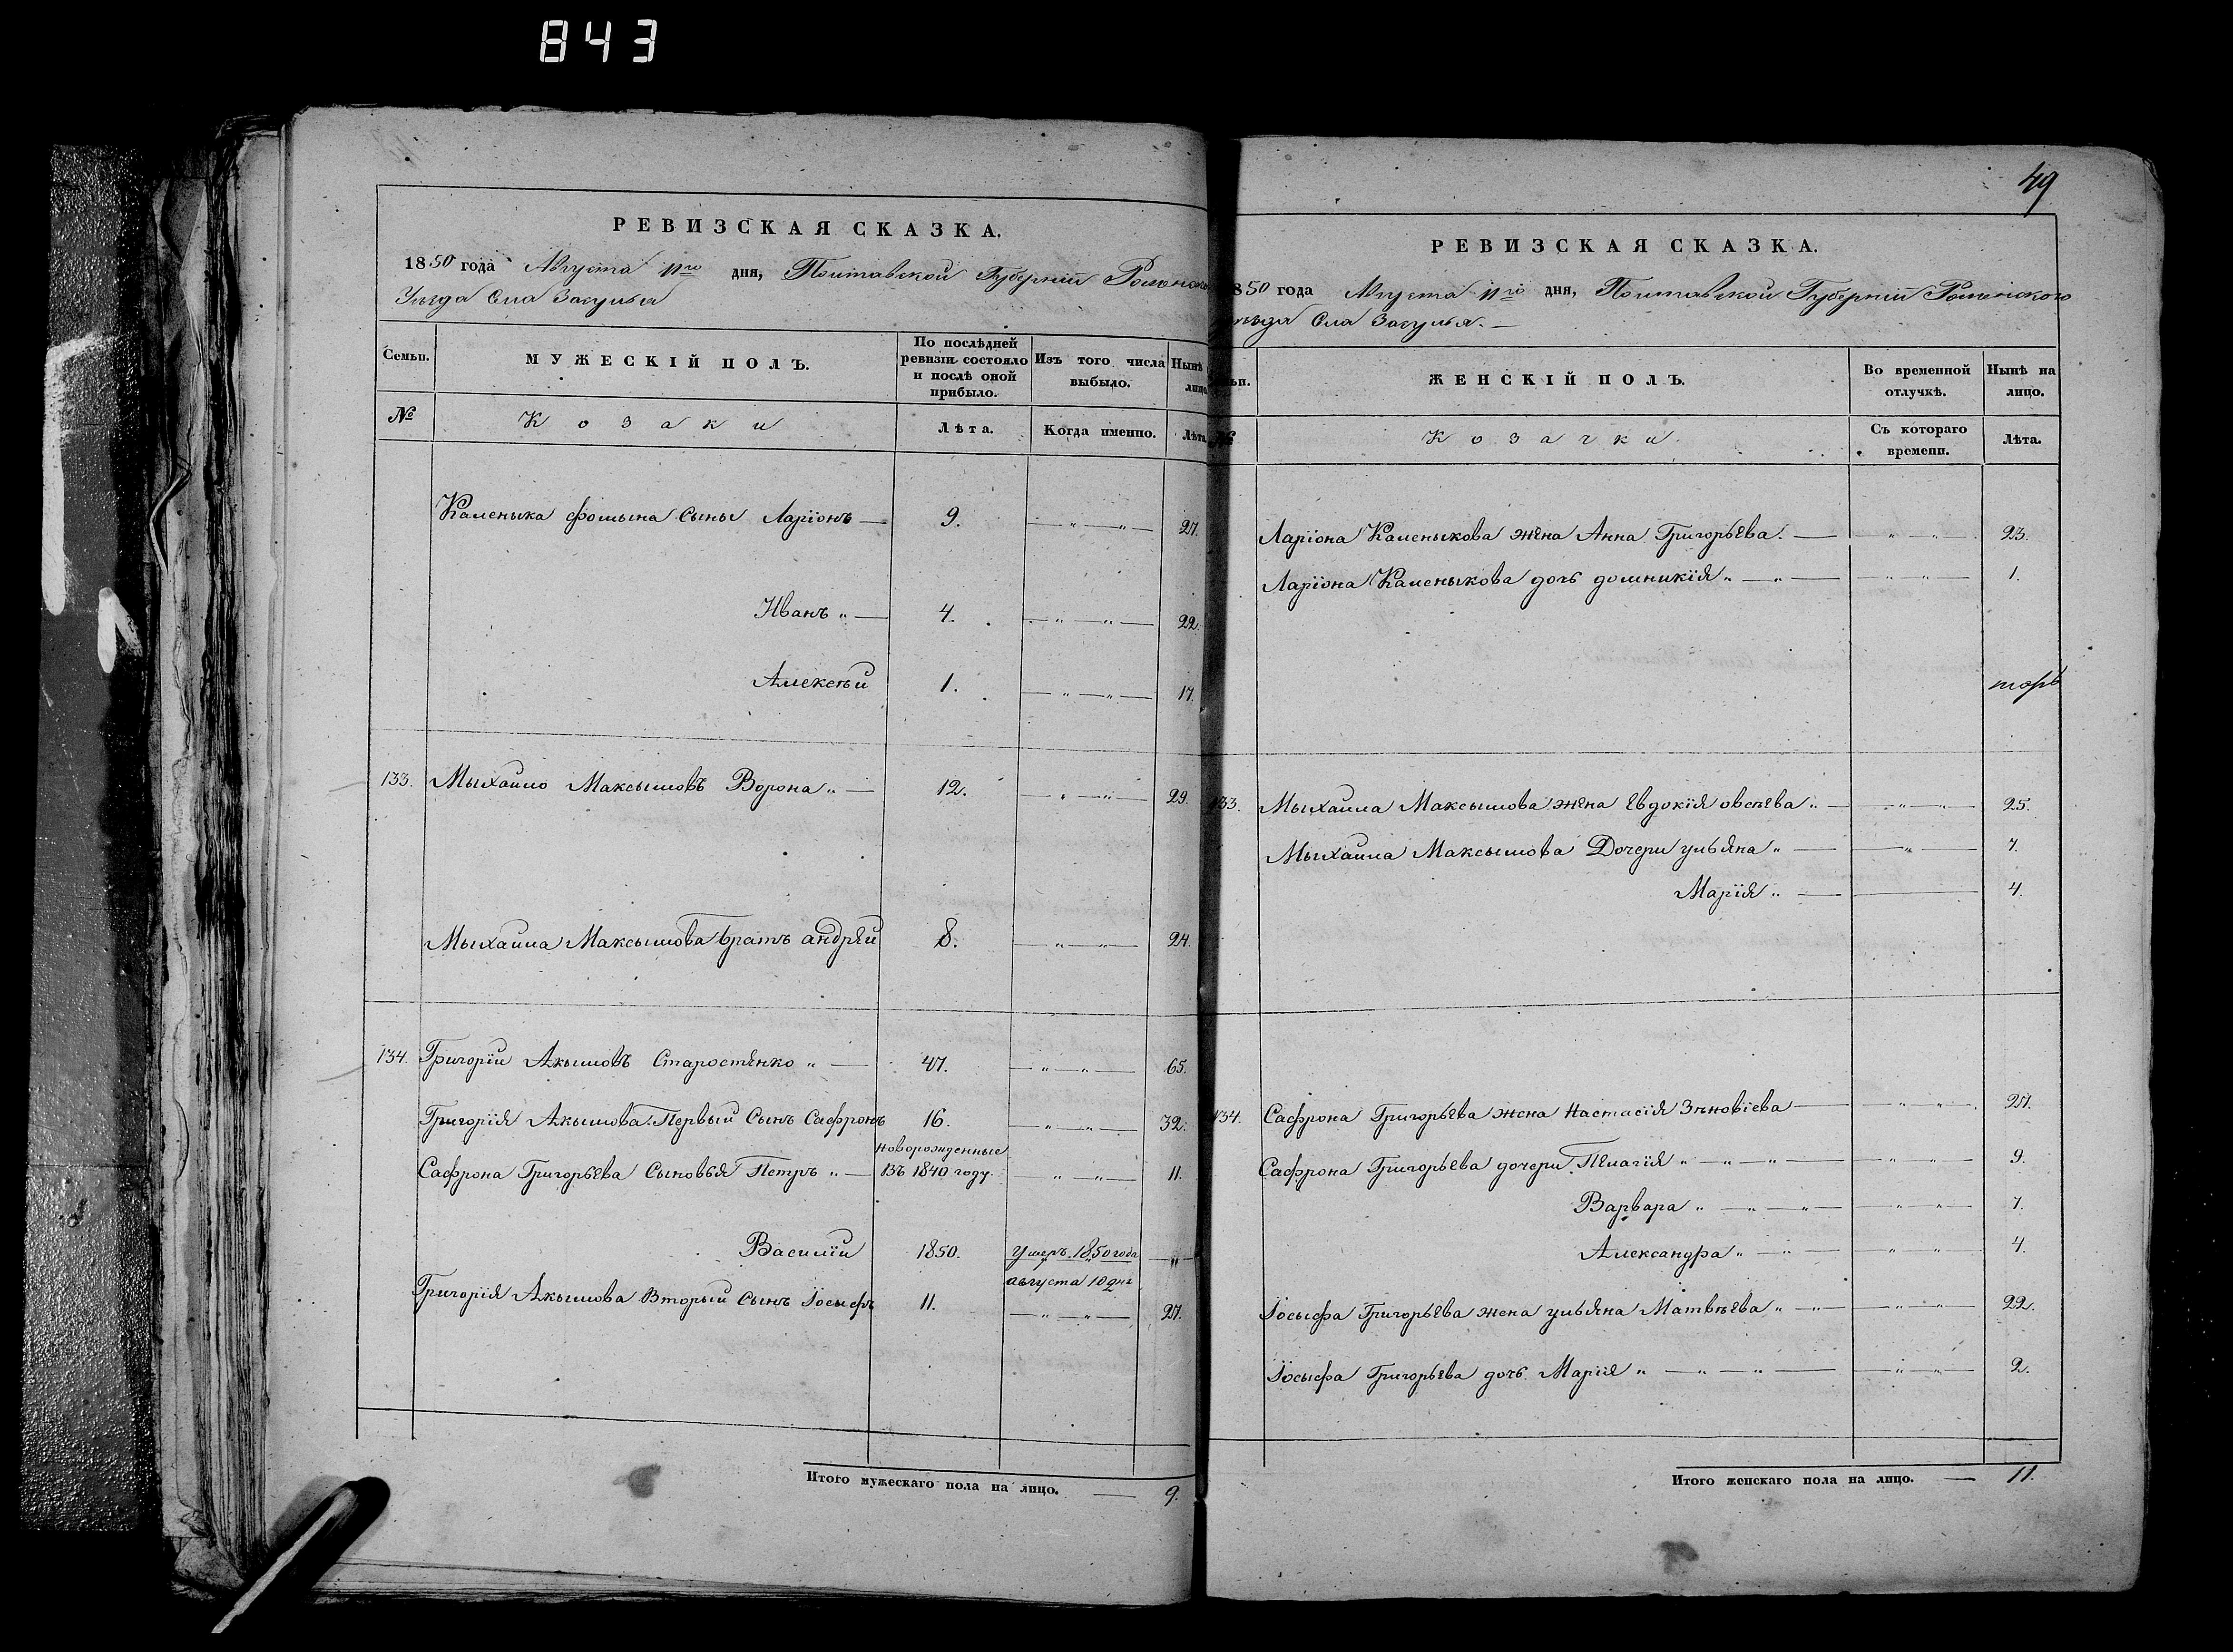 843
РЕВИЗСКАЯ СКАЗКА.
1850 года Августа 11го дня, Полтавской Губерніи Роменского
Уезда Села Засулья
Семьи.
МУЖЕСКІЙ ПОЛЪ.
По послѣдней ревизіи состояло и послѣ оной прибыло.
Изъ того числа выбыло.
Нынѣ лицо
№
Козаки
Лѣта.
Когда именно.
Лѣта
Каменыка Фомына Сыны Ларіонъ — 9. — " — " — 27.
Иванъ " — 4. — " — " — 22.
Алексѣй 1. — " — " — 17.
133. Мыхайло Максымовъ Ворона " — 12. — " — " — 29.
Мыхайла Максымова братъ андрей 8. — " — " — 24.
134. Григорій Акымовъ Старостенко " — 47. — " — " — 65.
Григорія Акымова Первый Сынъ Сафронъ 16. — " — " — 32.
новорожденные
Сафрона Григорьева Сыновья Петръ " — въ 1840 году. — " — " — 11.
Василій 1850. умеръ 1850 года — " —
августа 10 дня
Григорія Акымова Вторый Сынъ Іосыфъ 11. — " — " — 27.
Итого мужескаго пола на лицо. — 9.
49
РЕВИЗСКАЯ СКАЗКА.
850 года Августа 11го дня, Полтавской Губерніи Роменского
уезда Села Засулья. —
ьи.
ЖЕНСКІЙ ПОЛЪ.
Во временной отлучкѣ.
Нынѣ на лицо.
№
Козачки
Съ котораго времени.
Лѣта.
Ларіона Каменыкова жена Анна Григорьева. — " — " — 23.
Ларіона Каменыкова дочь домникія " — " — " — " — 1.
133. Мыхайла Максымова жена Евдокія овсеева " — " — " — 25.
Мыхайла Максымова Дочери ульяна " — " — 7.
Марія " — 4.
134. Сафрона Григорьева жена Настасія Зѣновіева — " — " — 27.
Сафрона Григорьева дочери Пелагія " — " — " — " — " — 9.
Варвара " — " — " — " — " — 7.
Александра " — " — " — " — 4.
Іосыфа Григорьева жена ульяна Матвѣева " — " — " — " — 22.
Іосыфа Григорьева дочь Марія " — " — " — " — " — 2.
Итого женскаго пола на лицо. — 11.